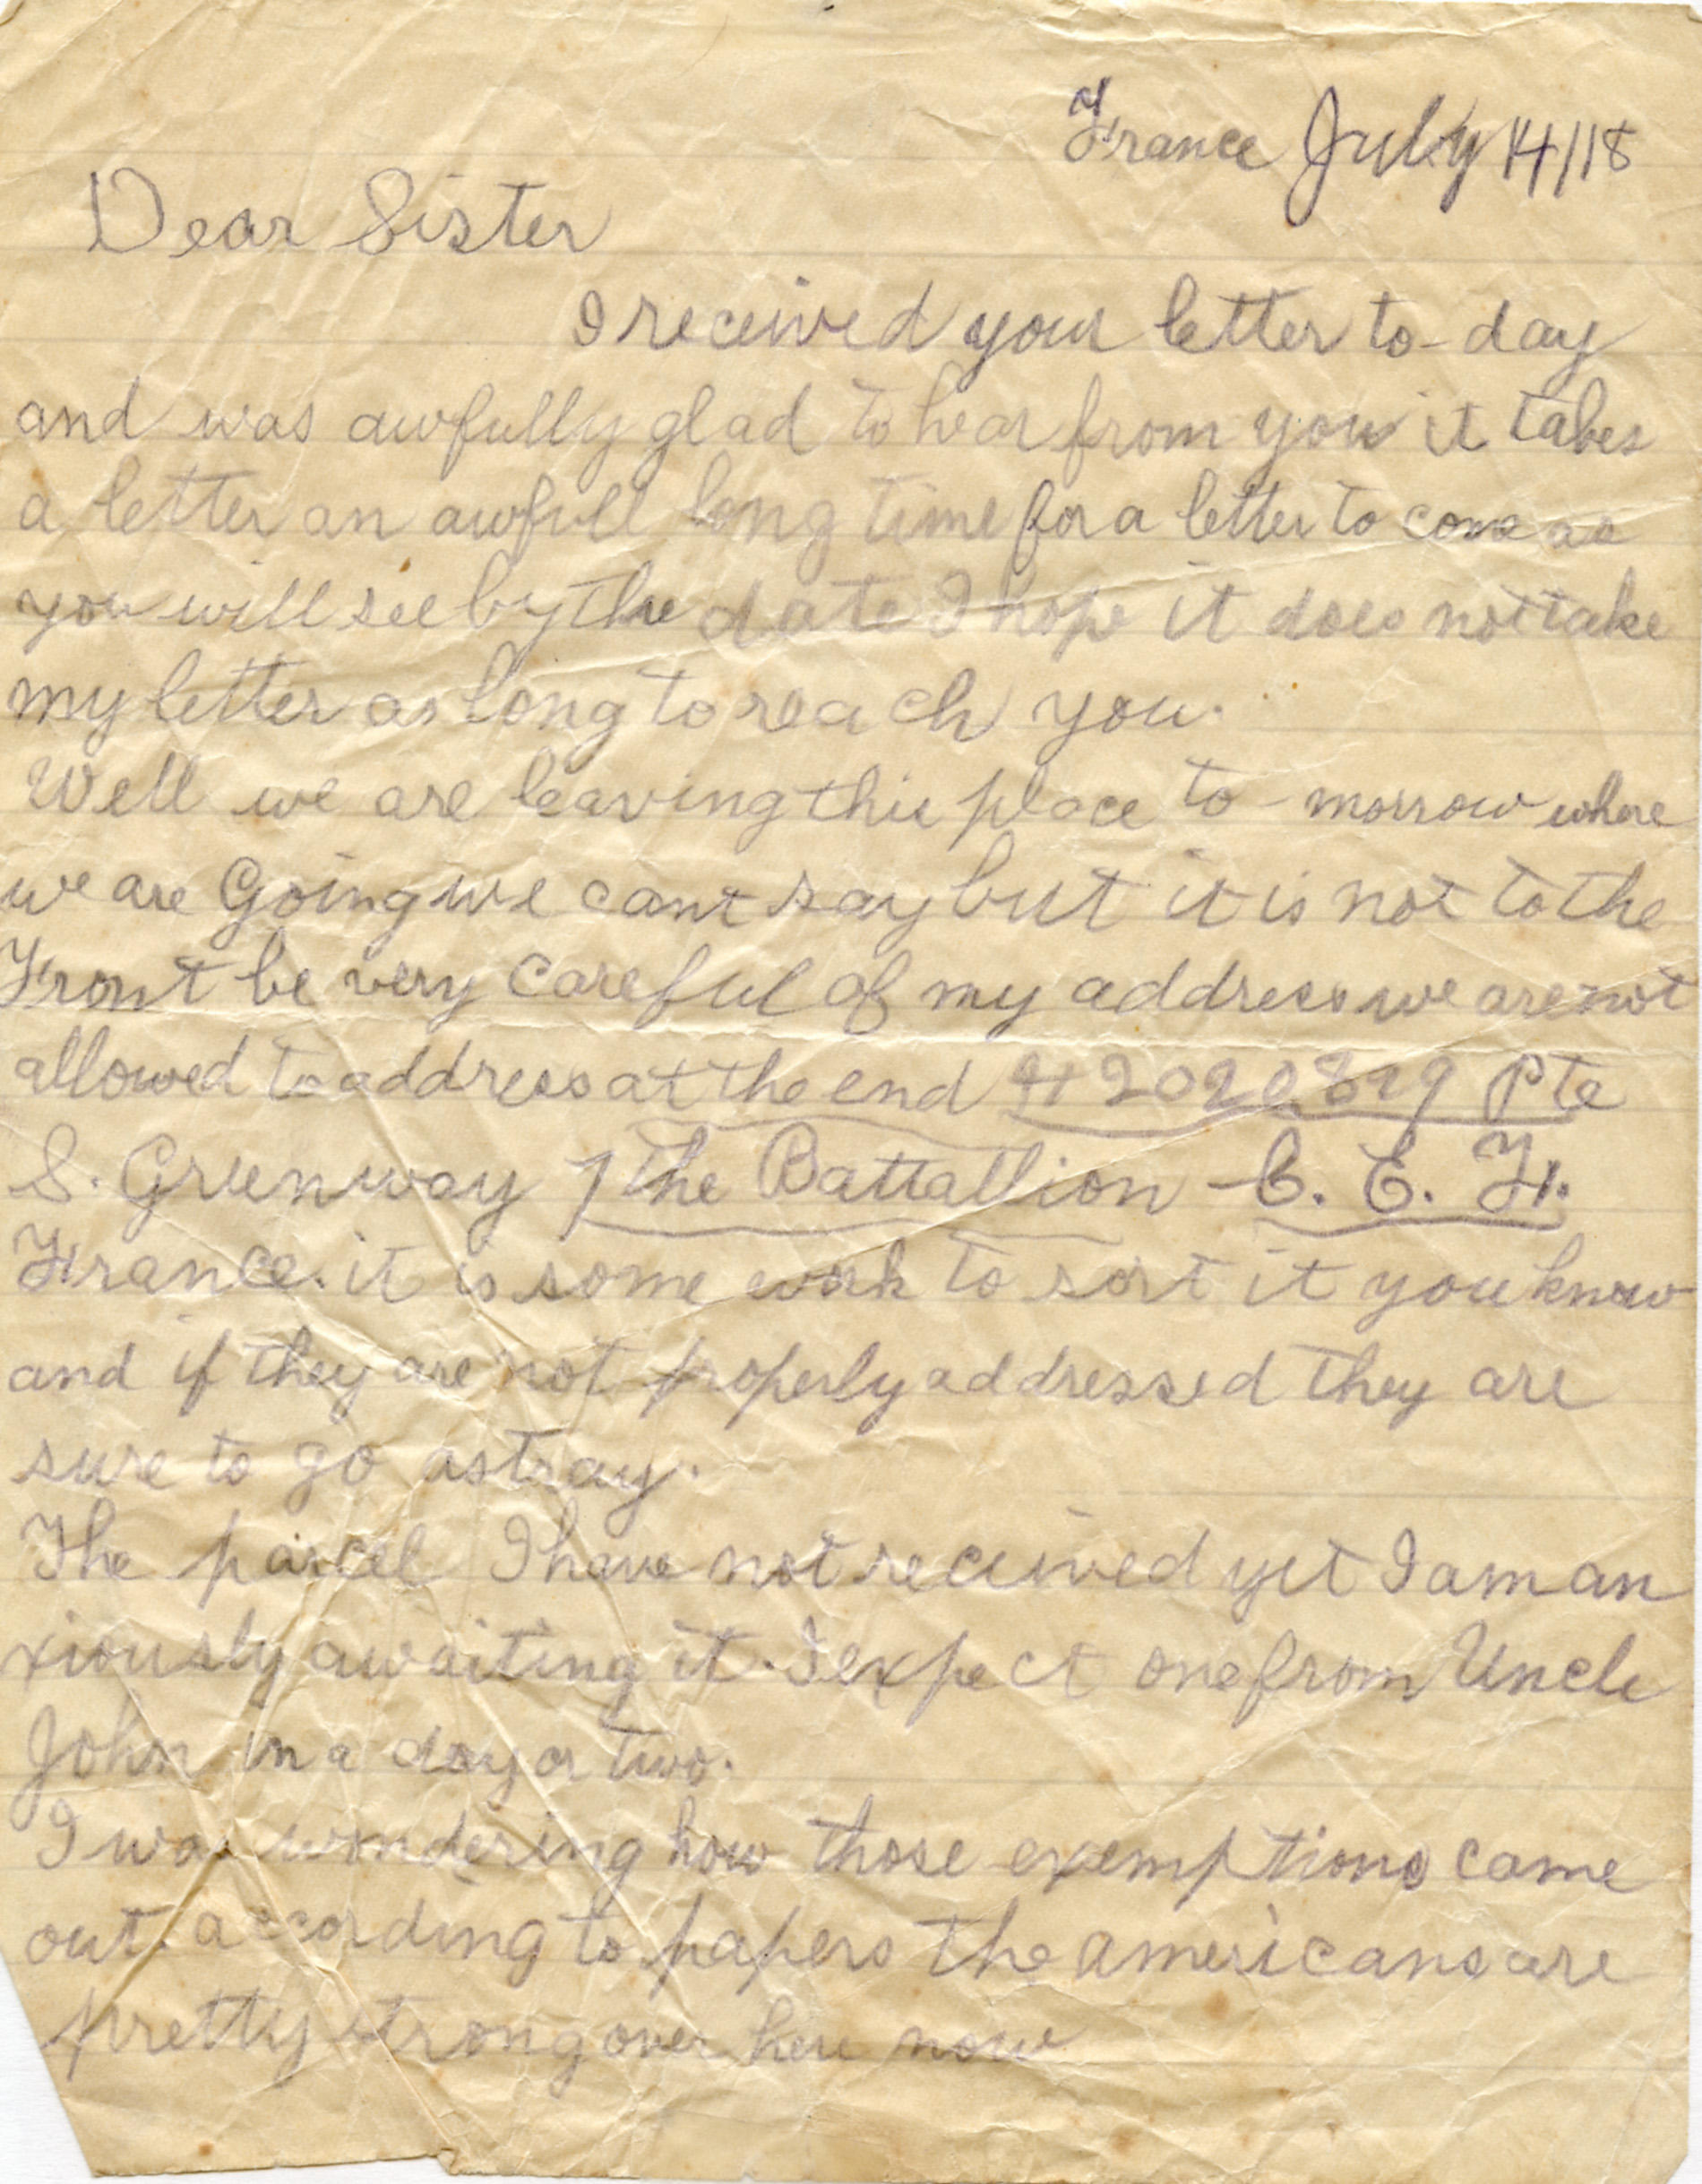 France July 14/18
Dear Sister
I received your letter to-day
and was awfully glad to hear from you it takes
a letter an awfull long time for a letter to come as
you will see by the date I hope it does not take
my letter as long to reach you.
Well we are leaving this place to-morrow where
we are Going we cant say but it is not to the
Front be very careful of my address we are not
allowed to address at the end # 2020829 Pte
S. Greenway 7the Battallion - C. E. F.
France. it is some work to sort it you know
and if they are not properly addressed they are
sure to go astray.
The parcel I have not received yet I am an
xiously awaiting it. I expect one from Uncle
John in a day or two.
I was wondering how those exemptions came
out. according to papers the americans are
pretty strong over here now